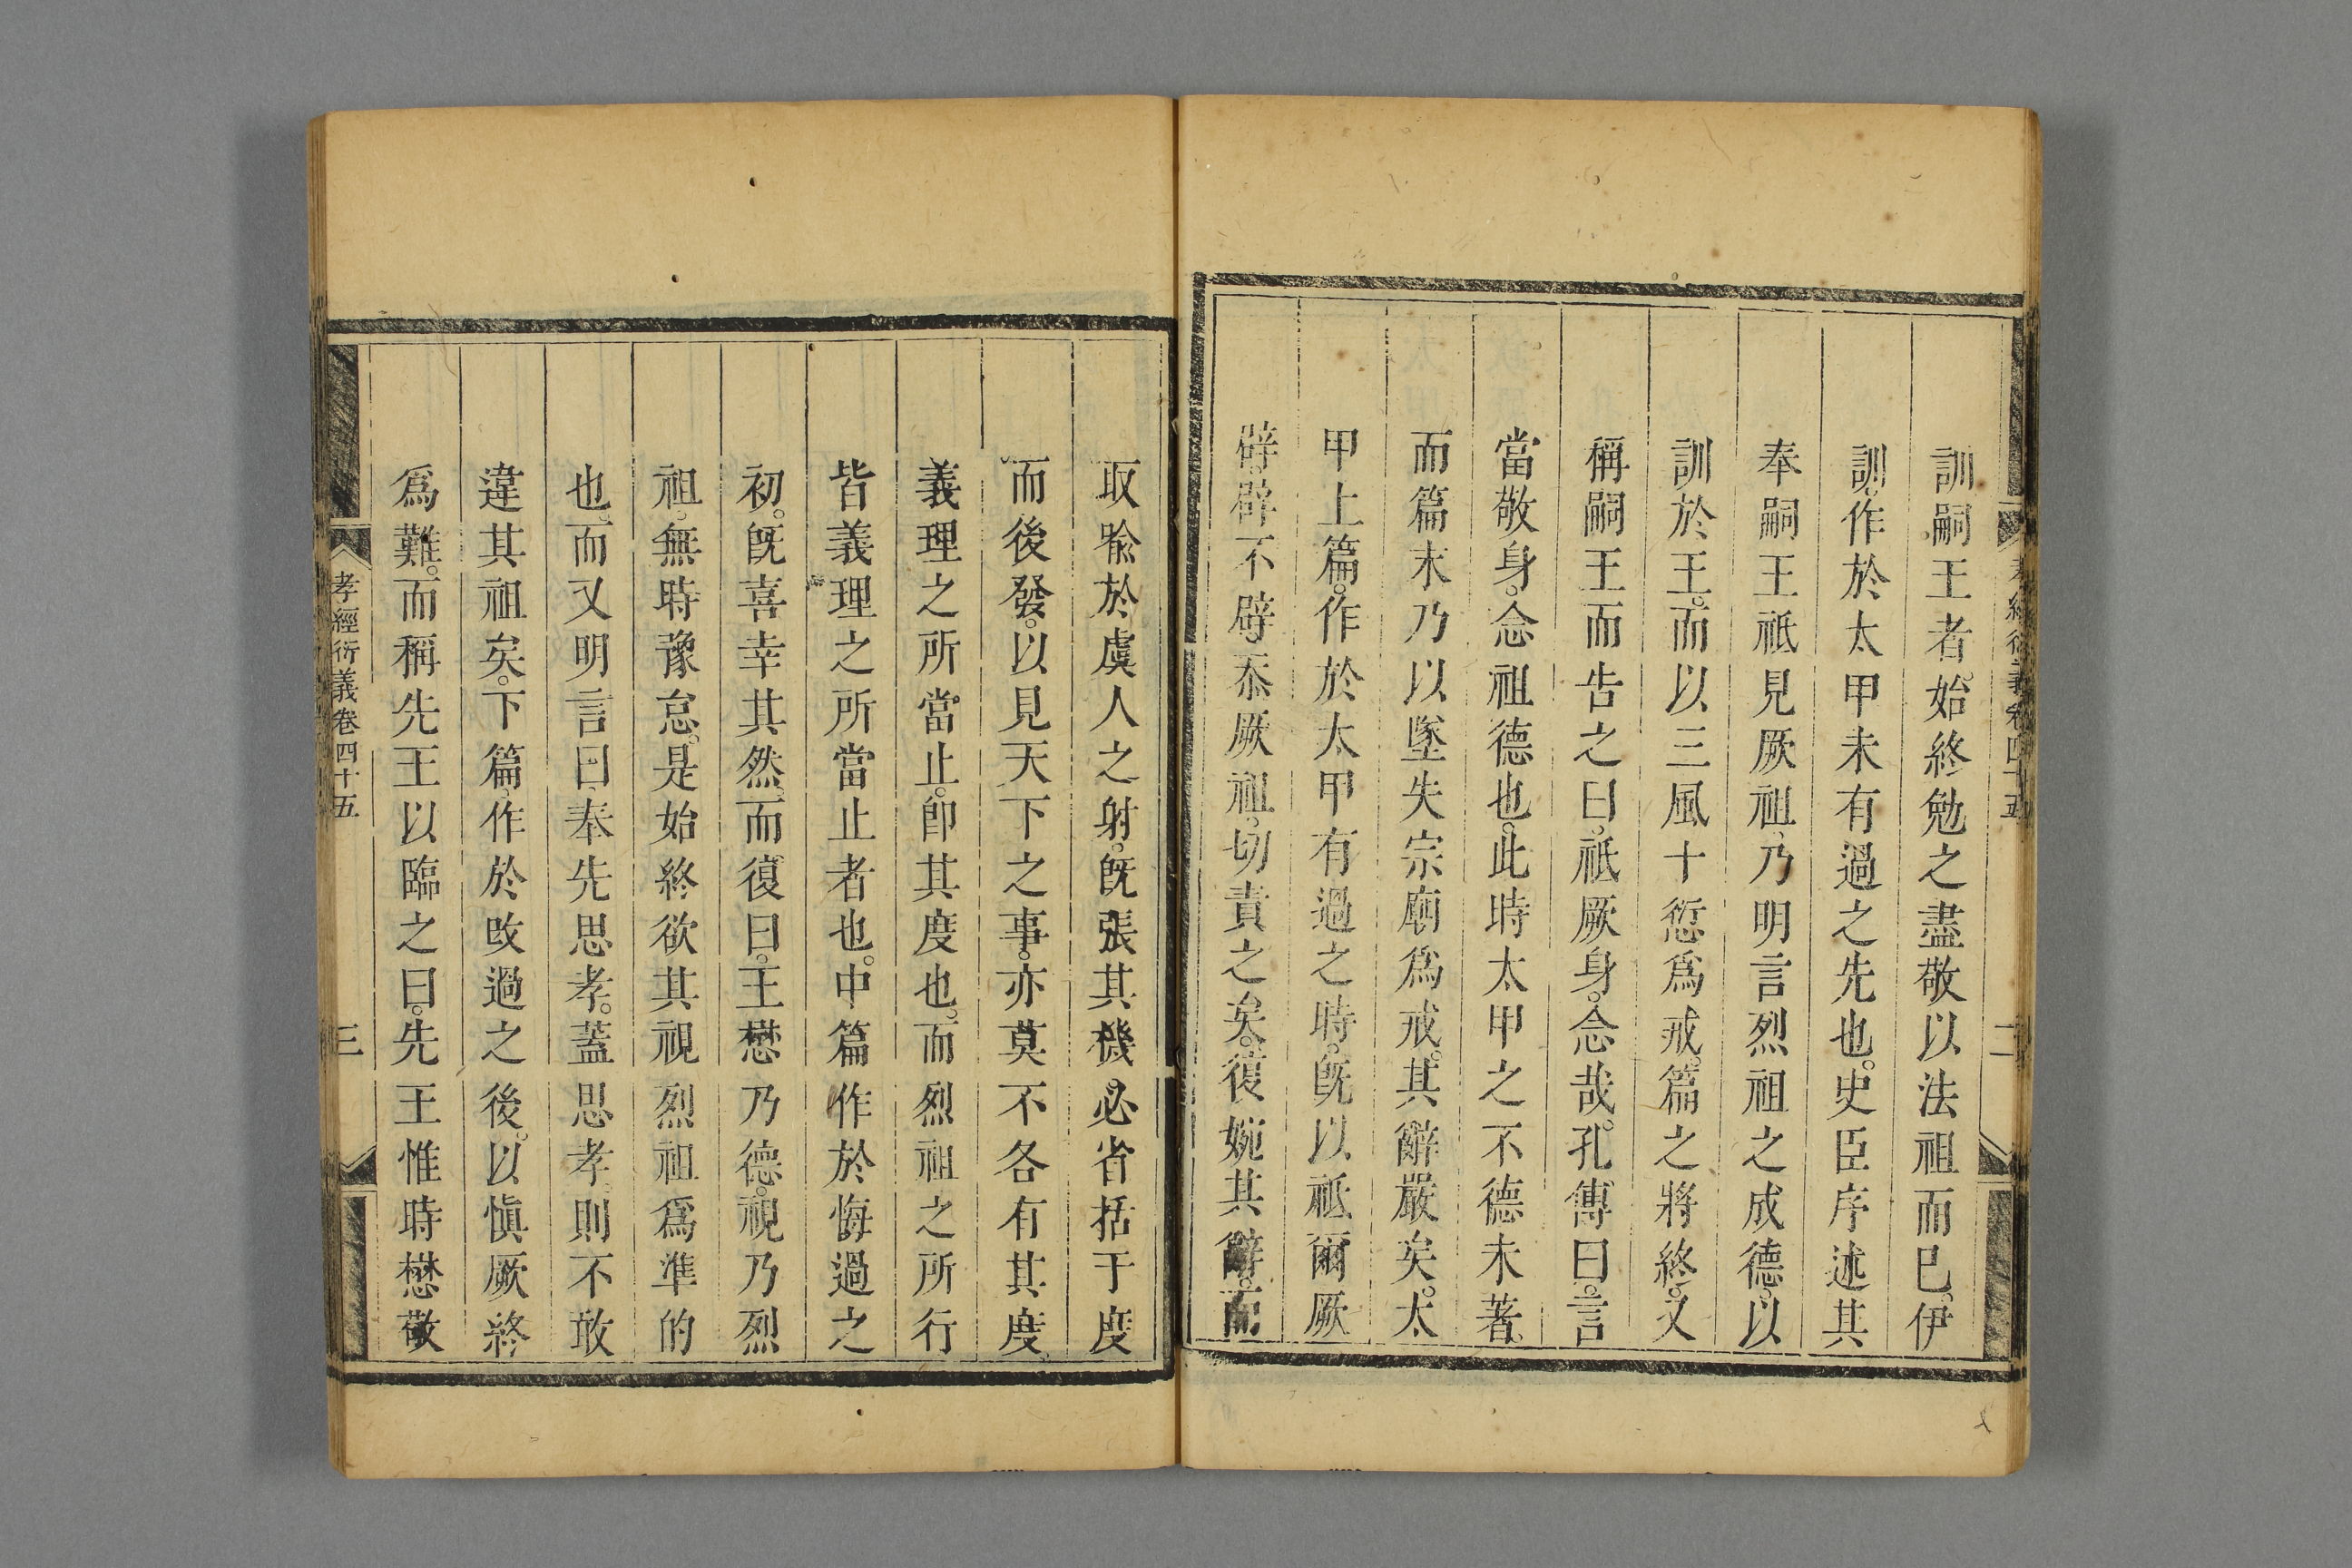 孝經衍義卷四十五
二
訓嗣王者。始終勉之盡敬以法祖而已。伊
訓。作於太甲未有過之先也。史臣序述其
奉嗣王祗見厥祖。乃明言烈祖之成德。以
訓於王。而以三風十愆爲戒。篇之將終。又
稱嗣王而告之曰。祗厥身。念哉。孔傳曰。言
當敬身。念祖德也。此時太甲之不德未著。
而篇末乃以墜失宗廟爲戒。其辭嚴矣。太
甲上篇。作於太甲有過之時。旣以祗爾厥
辟。辟不辟。忝厥祖。切責之矣。復婉其辭。而
取喩於虞人之射。旣張其機必省括于度
而後發。以見天下之事。亦莫不各有其度。
義理之所當止。卽其度也。而烈祖之所行
皆義理之所當止者也。中篇作於悔過之
初。旣喜幸其然。而復曰。王懋乃德。視乃烈
祖。無時豫怠。是始終欲其視烈祖爲準的
也。而又明言曰。奉先思孝。蓋思孝。則不敢
違其祖矣。下篇。作於改過之後。以愼厥終
爲難。而稱先王以臨之曰。先王惟時懋敬
孝經衍義卷四十五
三